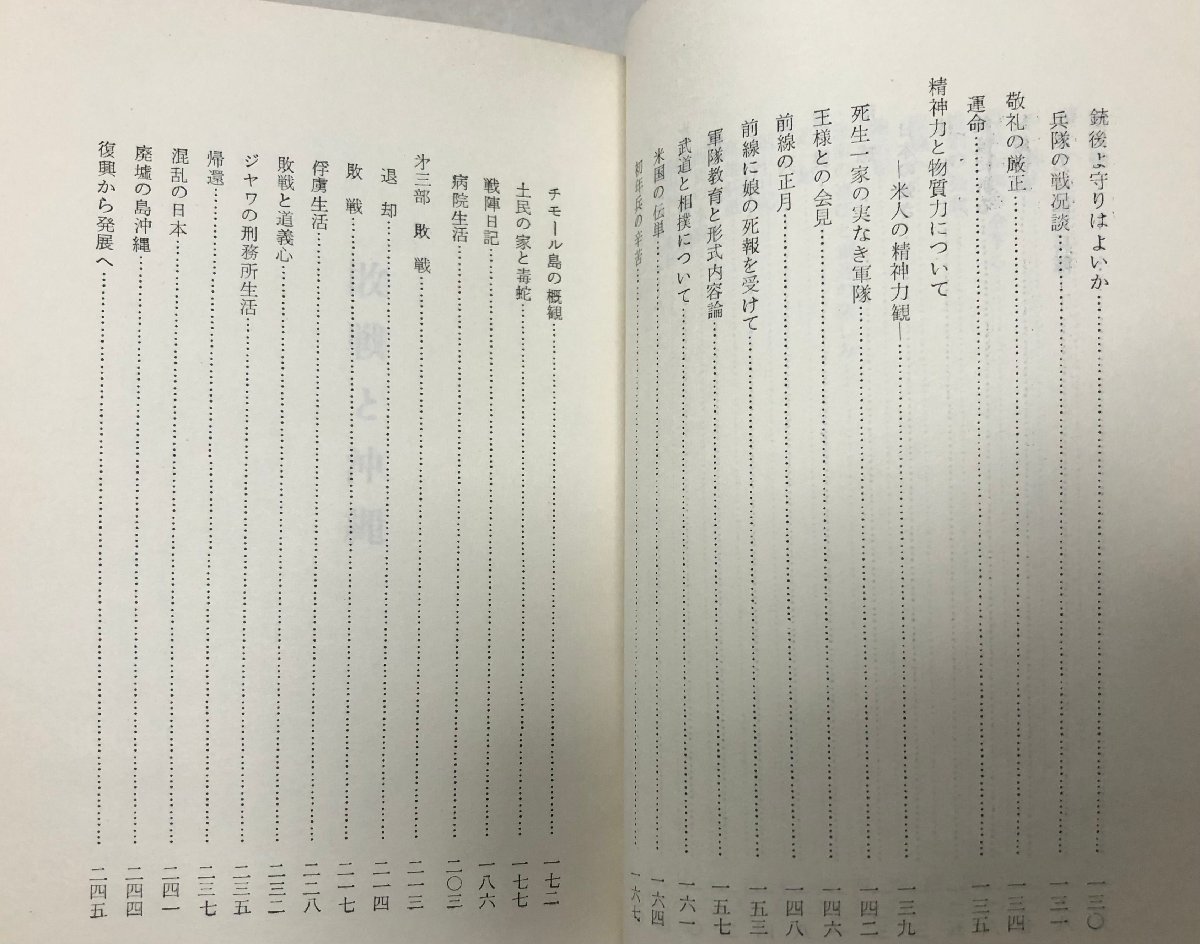 銃後よ守りはよいか……一三〇
兵隊の戦況談……一三一
敬礼の厳正……一三四
運命……一三五
精神力と物質力について
―米人の精神力観―……一三九
死生一家の実なき軍隊……一四二
王様との会見……一四六
前線の正月……一四八
前線に娘の死報を受けて……一五三
軍隊教育と形式内容論……一五七
武道と相撲について……一六一
米国の伝単……一六四
初年兵の辛苦……一六七
チモール島の概観……一七二
土民の家と毒蛇……一七七
戦陣日記……一八六
病院生活……二〇三
㐧三部 敗戦……二一三
退却……二一四
敗戦……二一七
俘虜生活……二二八
敗戦と道義心……二三二
ジヤワの刑務所生活……二三五
帰還……二三七
混乱の日本……二四一
廃墟の島沖縄……二四四
復興から発展へ……二四五